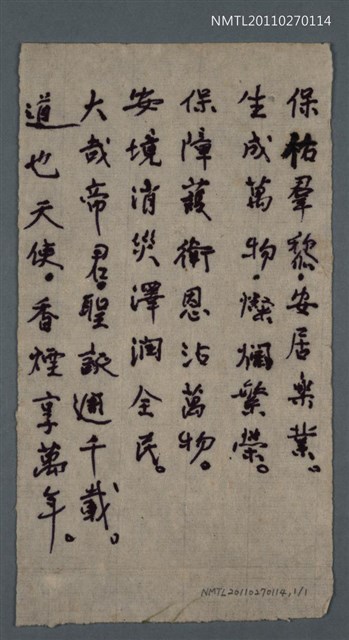 NMTL20110270114
保祐羣黎。安居樂業。
生成萬物。燦爛繁榮。
保障護衛恩沾萬物。
安境消災澤润全民。
大哉帝君。聖誕通千載。
道也天使。香煙享萬年。
NMTL20110270114,1/1